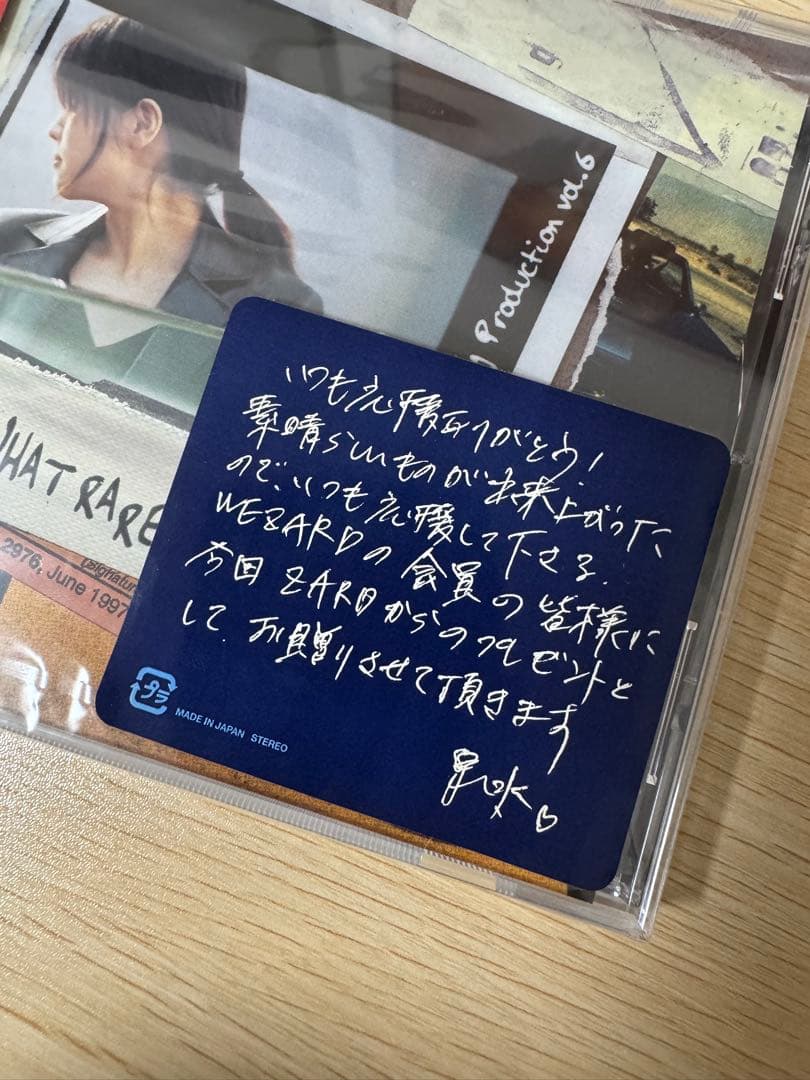 Production vol.6
WHAT RARE
2976, June 1997
いつも応援ありがとう!
素晴らしいものが出来上がった
ので、いつも応援して下さる
WEZARDの会員の皆様に
今回ZARDからのプレゼントと
して、お贈りさせて頂きます
泉水
プラ
MADE IN JAPAN STEREO